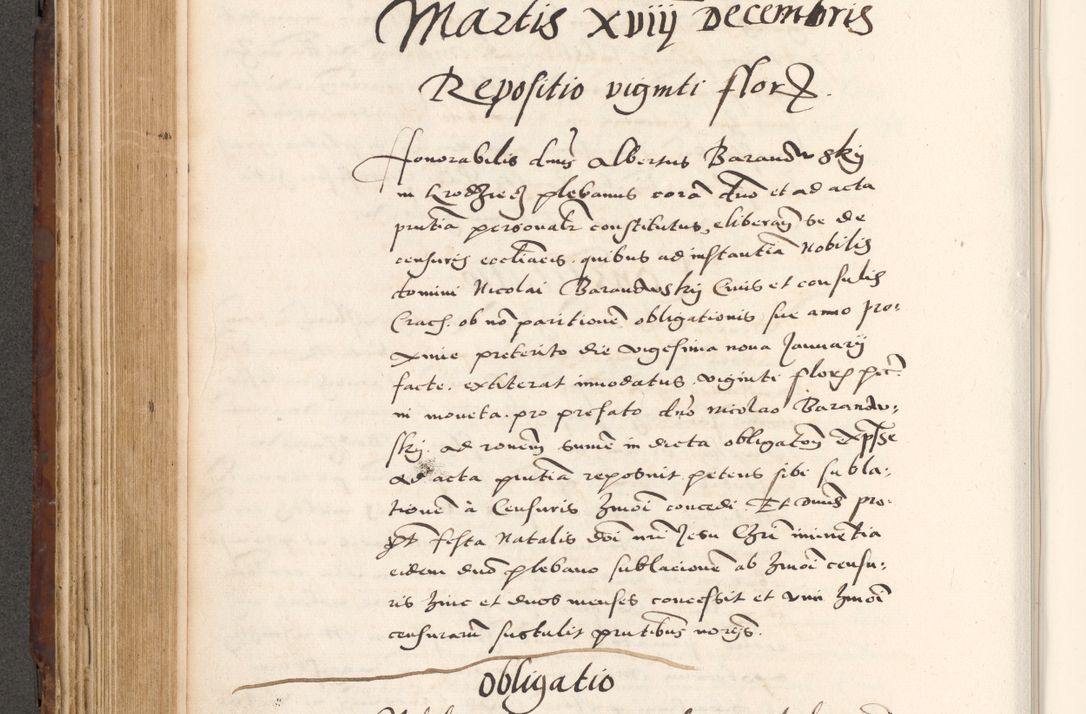 Martis xviij Decembris
Repositio viginti florꝝ.
Honorabilis dnus Albertus Barandwskij
in plebanus corā dno et ad acta
pntia personalr constitutus, eliberans se de
censuris ecclīaeis. quibus ad instantiā Nobilis
domini Nicolai Barandwskij Ciuis et consulis
Crach. ob nō paritionē obligationis sue anno pro-
xime preterito die vigesima nona Januarij
facte. extiterat innodatus. viginti florꝝ pec.
in moneta. pro prefato dno Nicolao Barandw-
skij. ad ronem sume in dicta obligatōe expsse
ad acta pntia reposuit petens sibi subla-
tionē à Censuris Jmoī concedi Et Dnus pro-
pt festa Natalis dōi nrī Jesu Chrī iminētia
eidem dnō plebano sublacionē ab Jmoī censu-
ris hinc et duos menses concessit et vim Jmoī
censurarū sustulit pntibus noris.
Obligatio